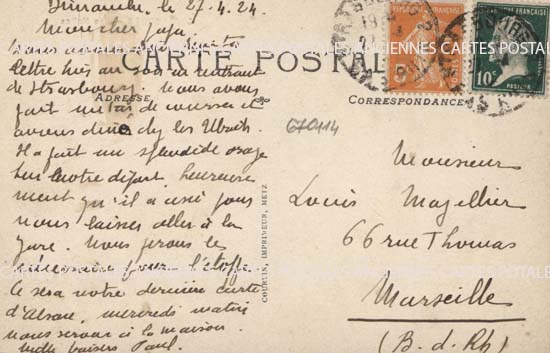 Dimanche, le 27.4.24
Mon cher papa
Nous avons
lettre hier au soir en rentrant
de Strasbourg. Nous avons
fait
avions diné chez les
Il a fait un splendide orage
sur notre départ, heureuse
ment qu'il a cessé pour
nous laisser aller à la
gare. Nous ferons le
nécessaire pour l'étoffe.
Ce sera notre dernière carte
d'Alsace, mercredi matin
nous serons à la maison.
Mille baisers Paul.
CARTE POSTALE
ADRESSE
CORRESPONDANCE
670114
COURTIN, IMPRIMEUR, METZ
Monsieur
Louis Magellier
66 rue Thomas
Marseille
(B. d. Rh)
5c
10c
PASTEUR
ANCIENNES CARTES POSTALES